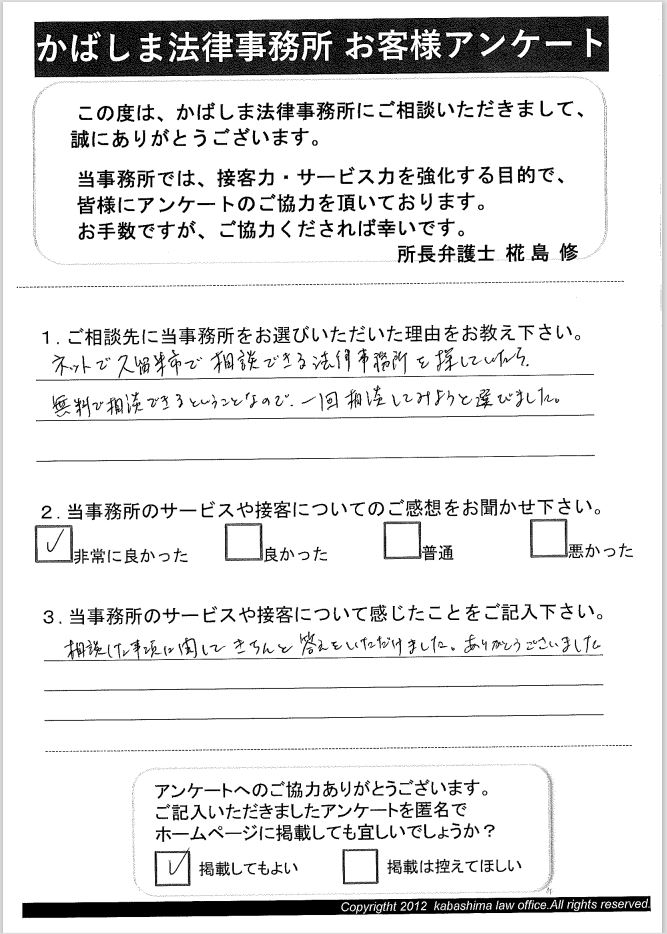 かばしま法律事務所 お客様アンケート
この度は、かばしま法律事務所にご相談いただきまして、
誠にありがとうございます。
当事務所では、接客力・サービス力を強化する目的で、
皆様にアンケートのご協力を頂いております。
お手数ですが、ご協力くだされば幸いです。
所長弁護士 椛島 修
1.ご相談先に当事務所をお選びいただいた理由をお教え下さい。
ネットで久留米市で相談できる法律事務所を探していたら、
無料で相談できるということなので、一回相談してみようと選びました。
2.当事務所のサービスや接客についてのご感想をお聞かせ下さい。
✓ 非常に良かった 良かった 普通 悪かった
3.当事務所のサービスや接客について感じたことをご記入下さい。
相談した事項に関してきちんと答えをいただけました。ありがとうございました
アンケートへのご協力ありがとうございます。
ご記入いただきましたアンケートを匿名で
ホームページに掲載しても宜しいでしょうか?
✓ 掲載してもよい 掲載は控えてほしい
Copyrigtht 2012 kabashima law office.All rights reserved.